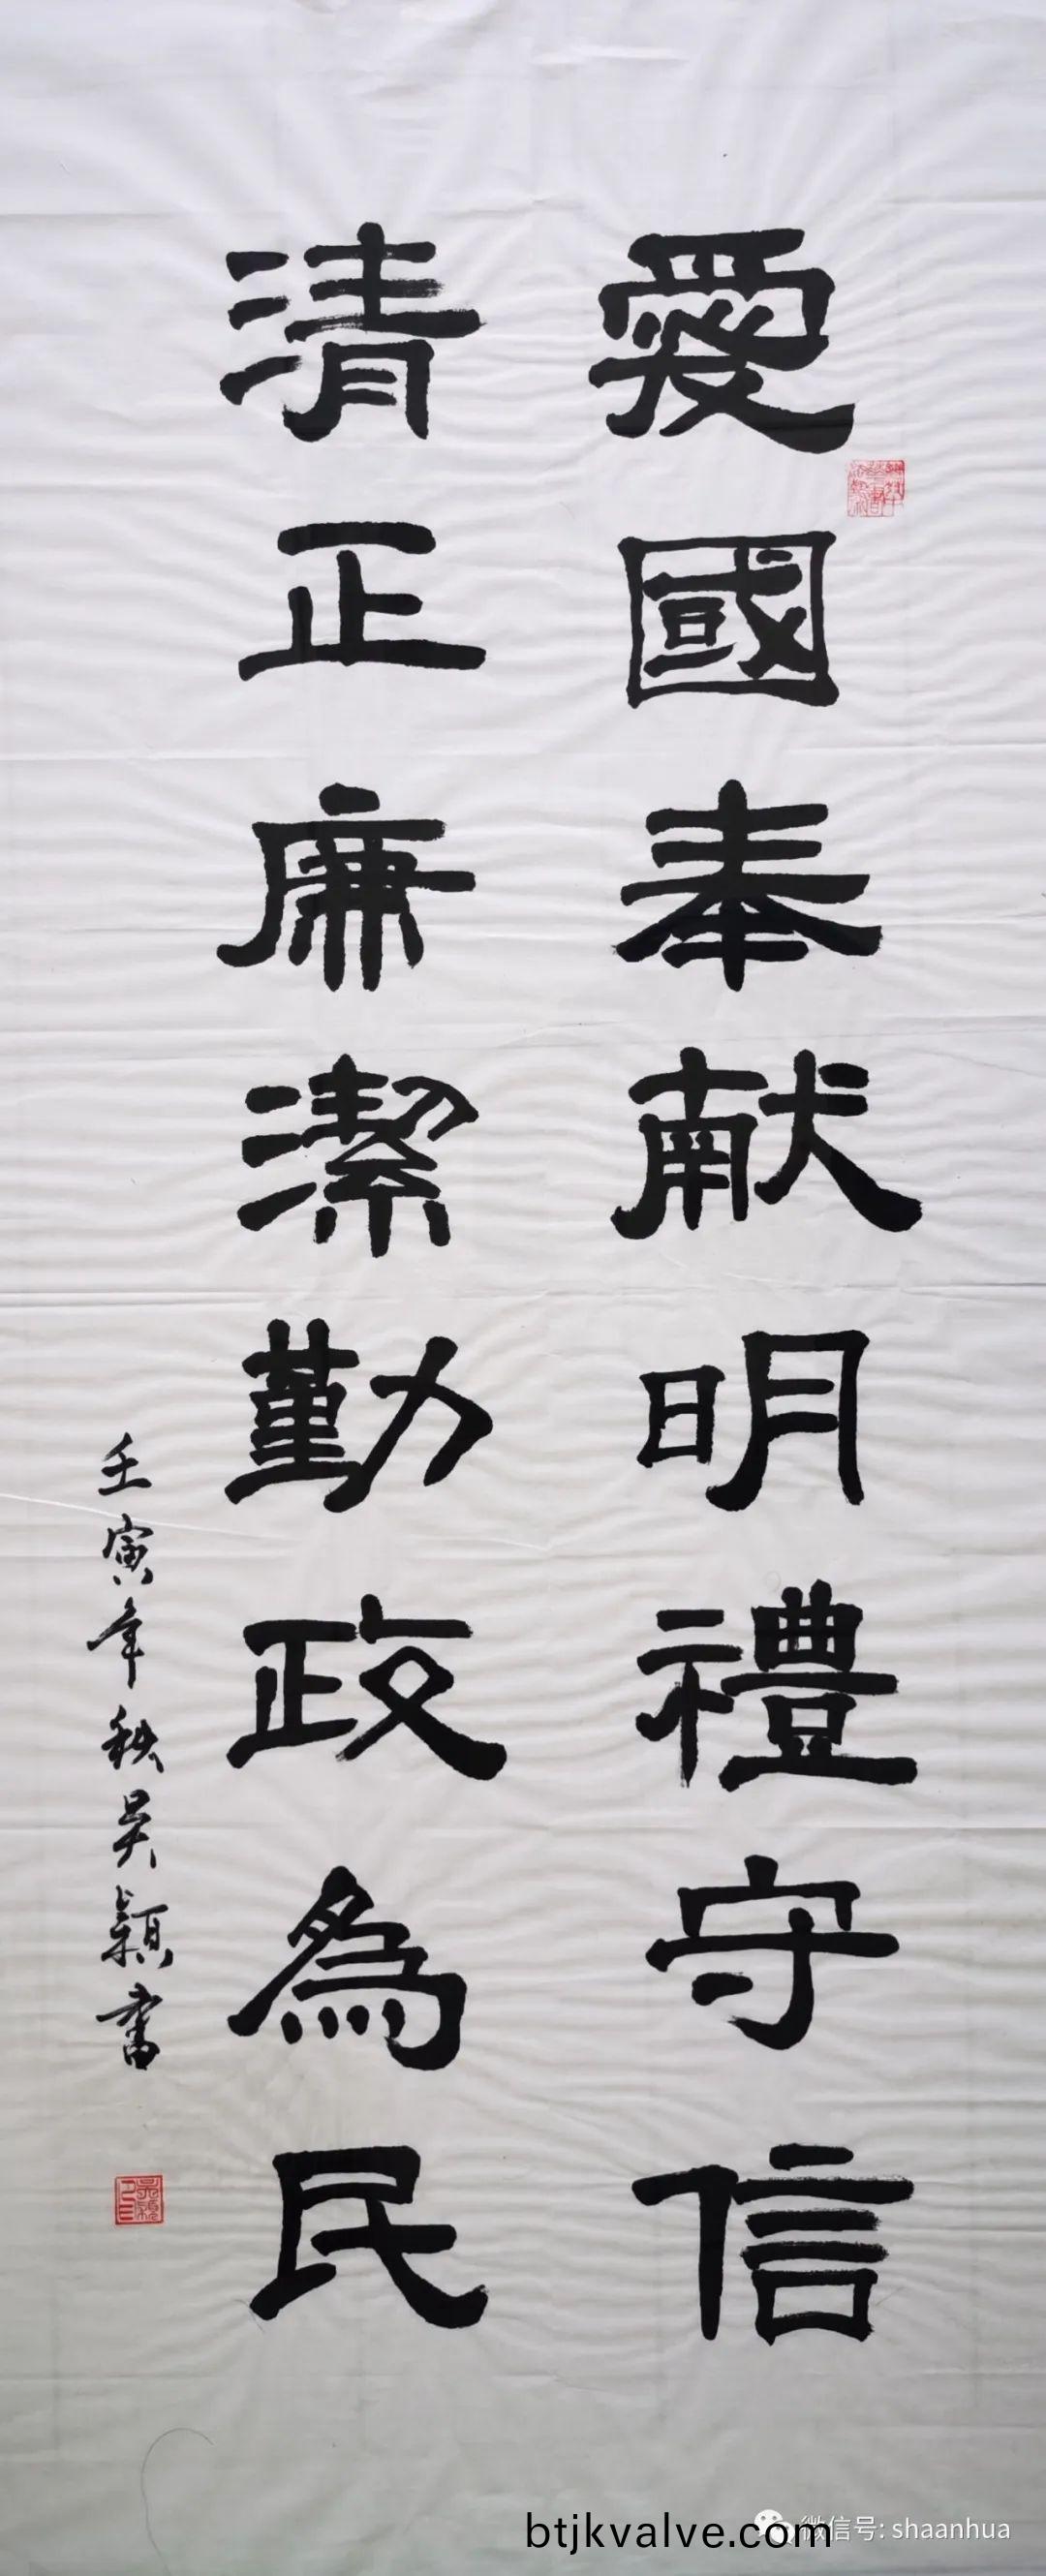 愛國奉献明禮守信
清正廉潔勤政為民
壬寅年秋吴颖書
微信号: shaanhua
btjkvalve.com